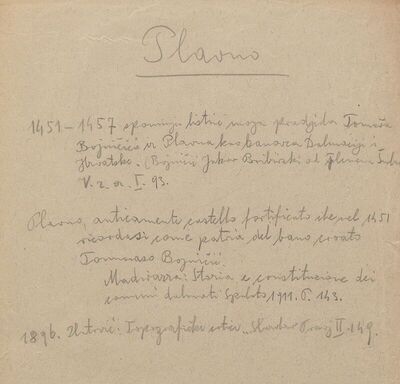 Plavno
1451 – 1457 spominju listine moga pradjeda Tomaša
Bojničića iz Plavna kao banovca Dalmacije i
Hrvatske. (Bojničić Jakov Bribirski od plemena Šubić
V. z. a. I. 93.
Plavno, anticamente castello fortificato che nel 1451
ricordasi come patria del bano croato
Tommaso Bojničić.
Storia e constituzione dei
comuni dalmati Spalato 1911. P. 143.
1896. Topografske II 149.